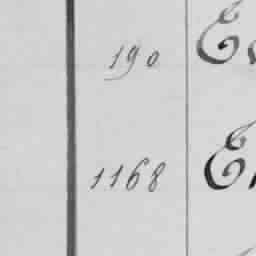 190 Ev
1168 E